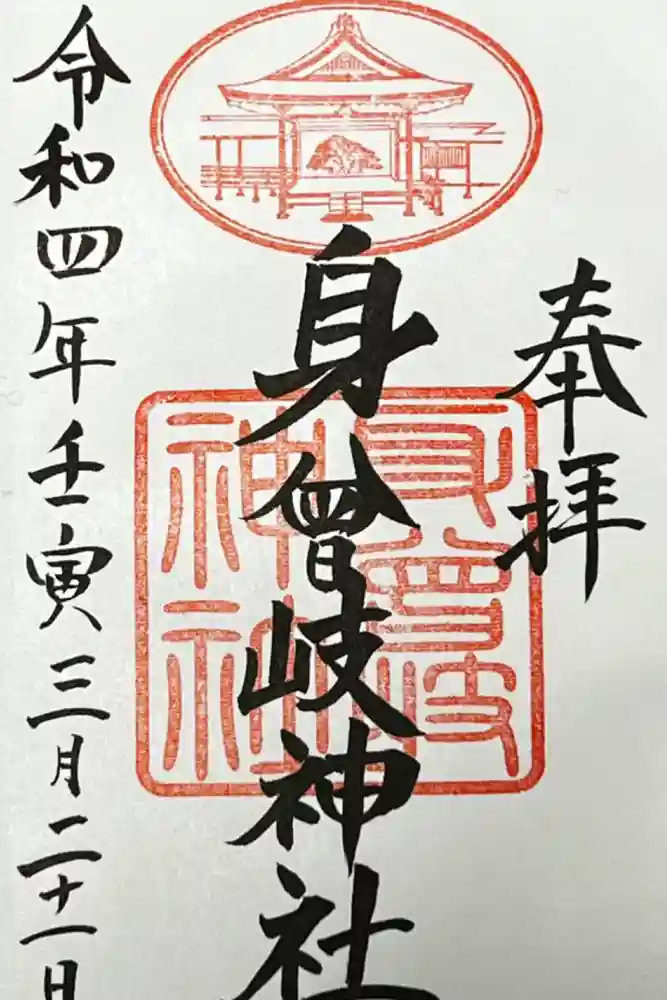 奉拝
身曾岐神社
身曾岐神社
令和四年壬寅三月二十一日